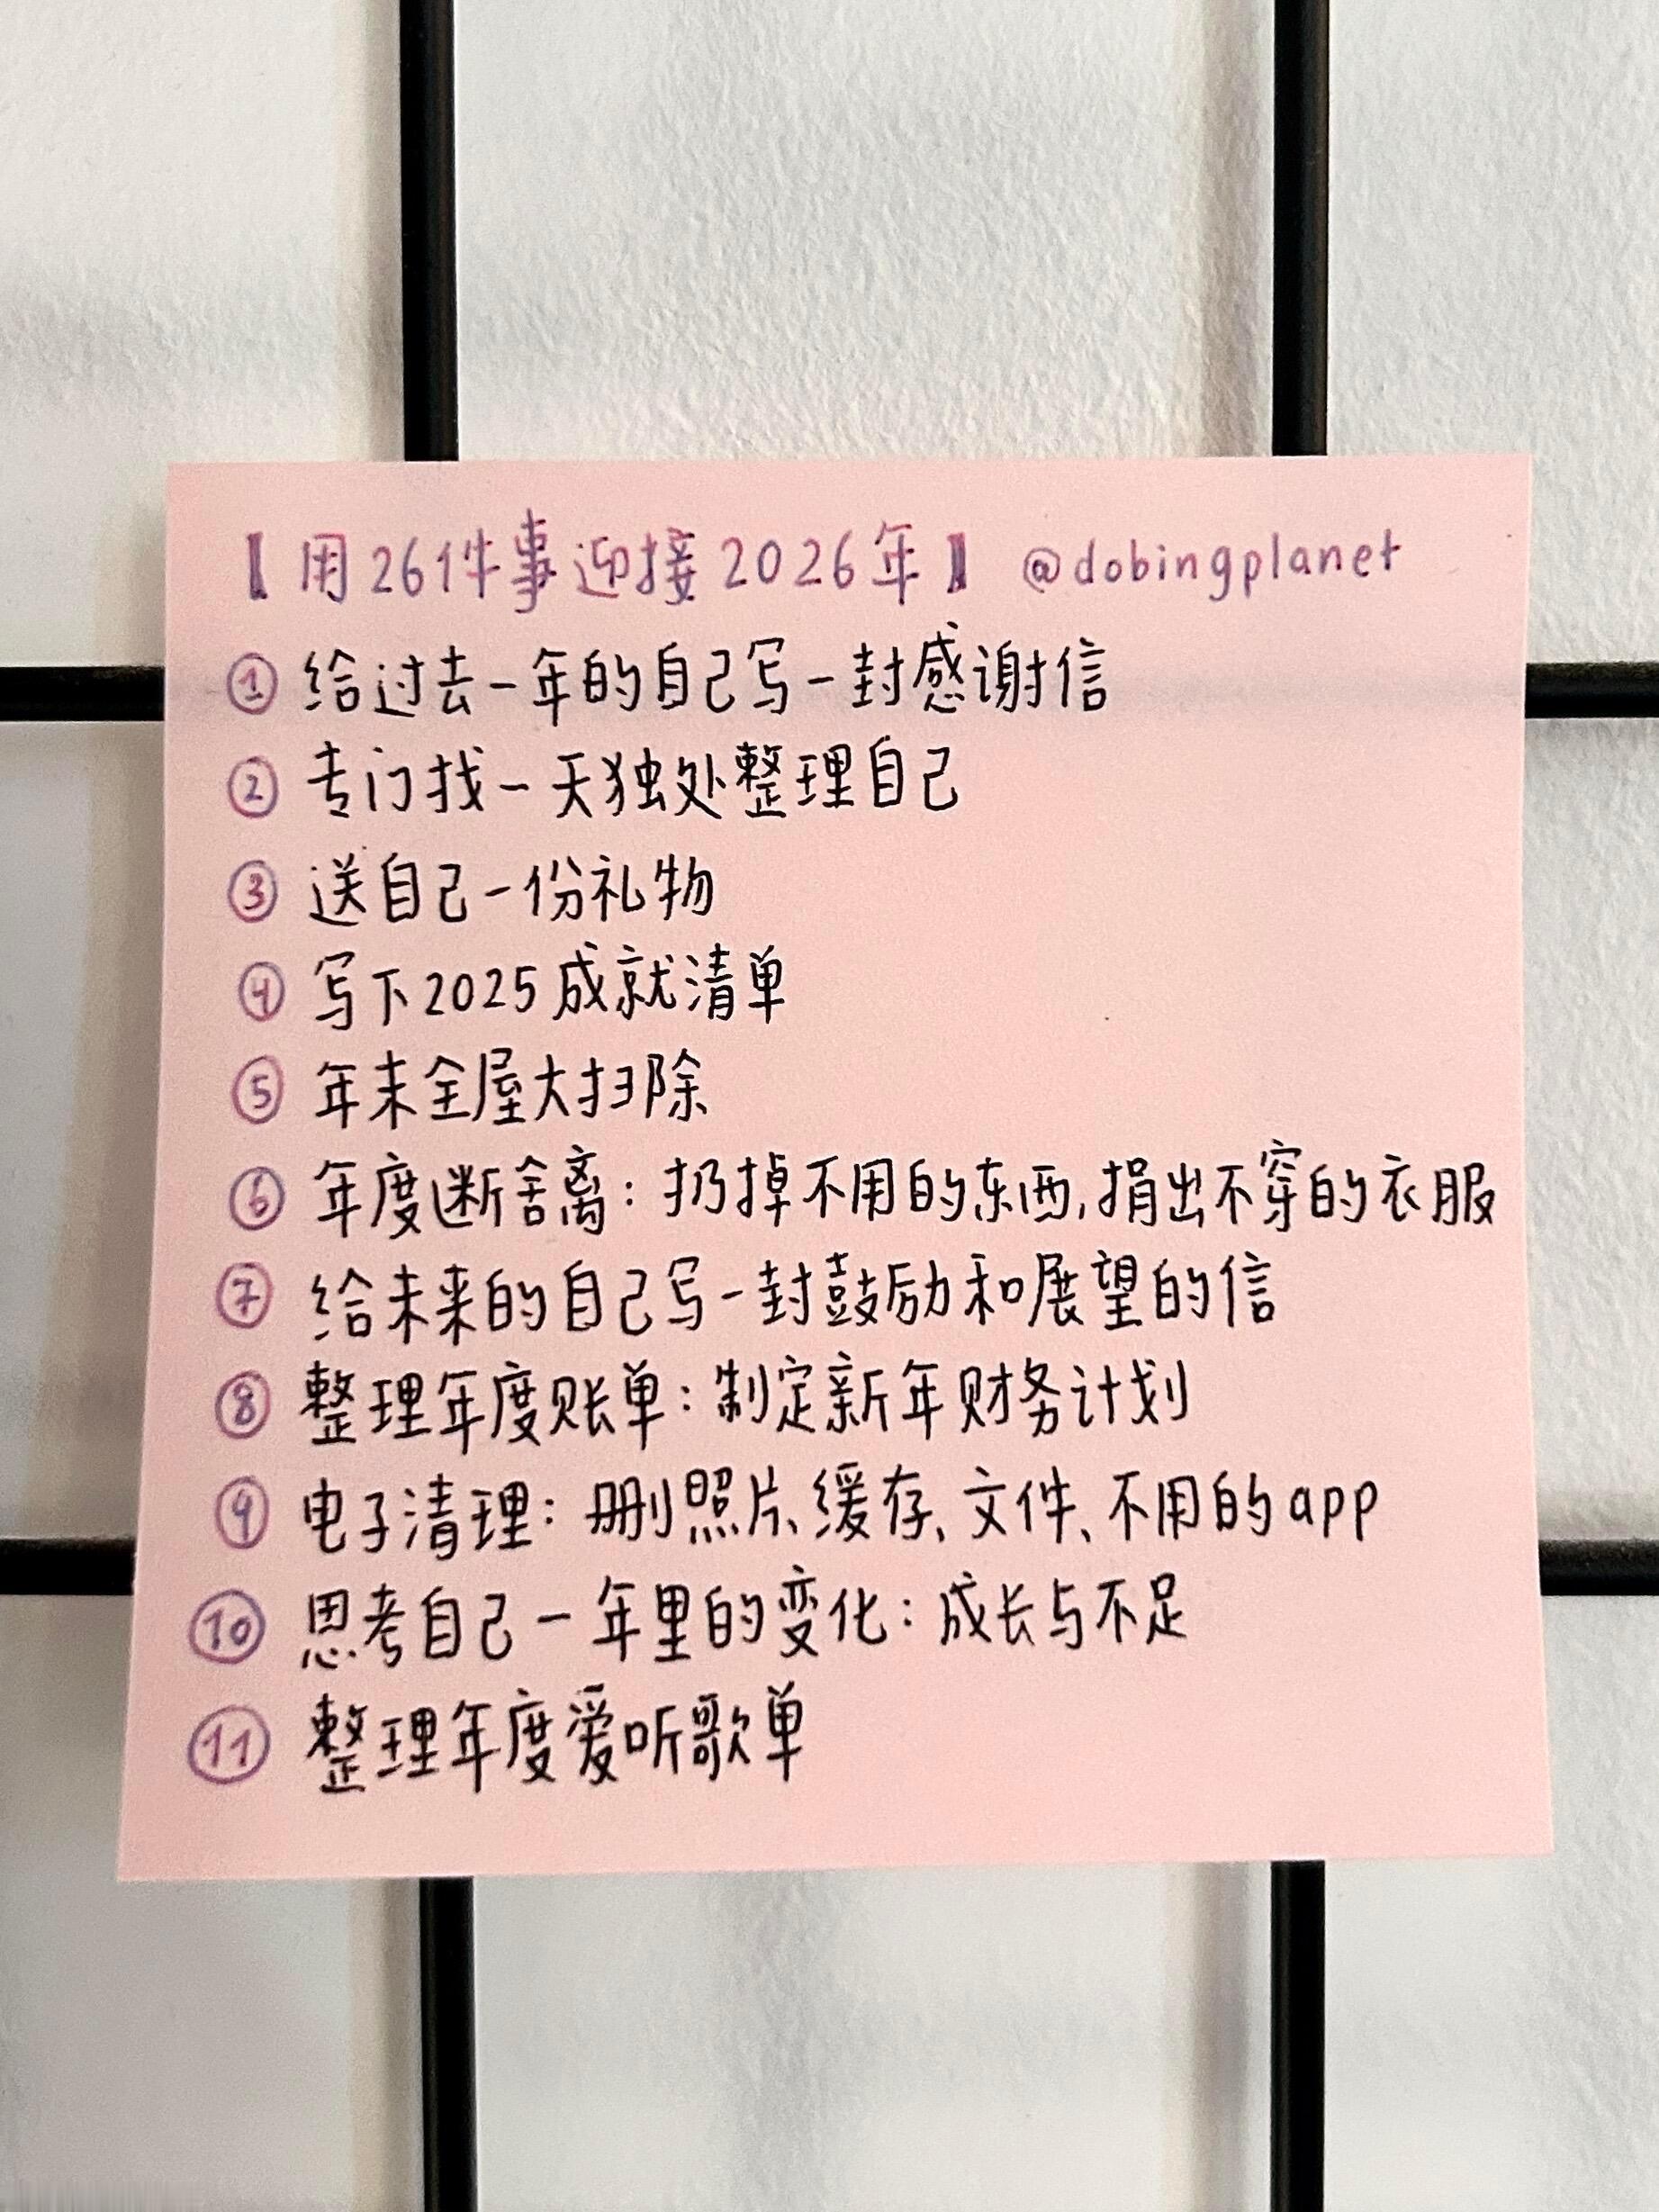 【用26件事迎接2026年】 @dobingplanet
① 给过去一年的自己写一封感谢信
② 专门找一天独处整理自己
③ 送自己一份礼物
④ 写下2025成就清单
⑤ 年末全屋大扫除
⑥ 年度断舍离:扔掉不用的东西,捐出不穿的衣服
⑦ 给未来的自己写一封鼓励和展望的信
⑧ 整理年度账单:制定新年财务计划
⑨ 电子清理:删照片、缓存、文件、不用的app
⑩ 思考自己一年里的变化:成长与不足
⑪ 整理年度爱听歌单